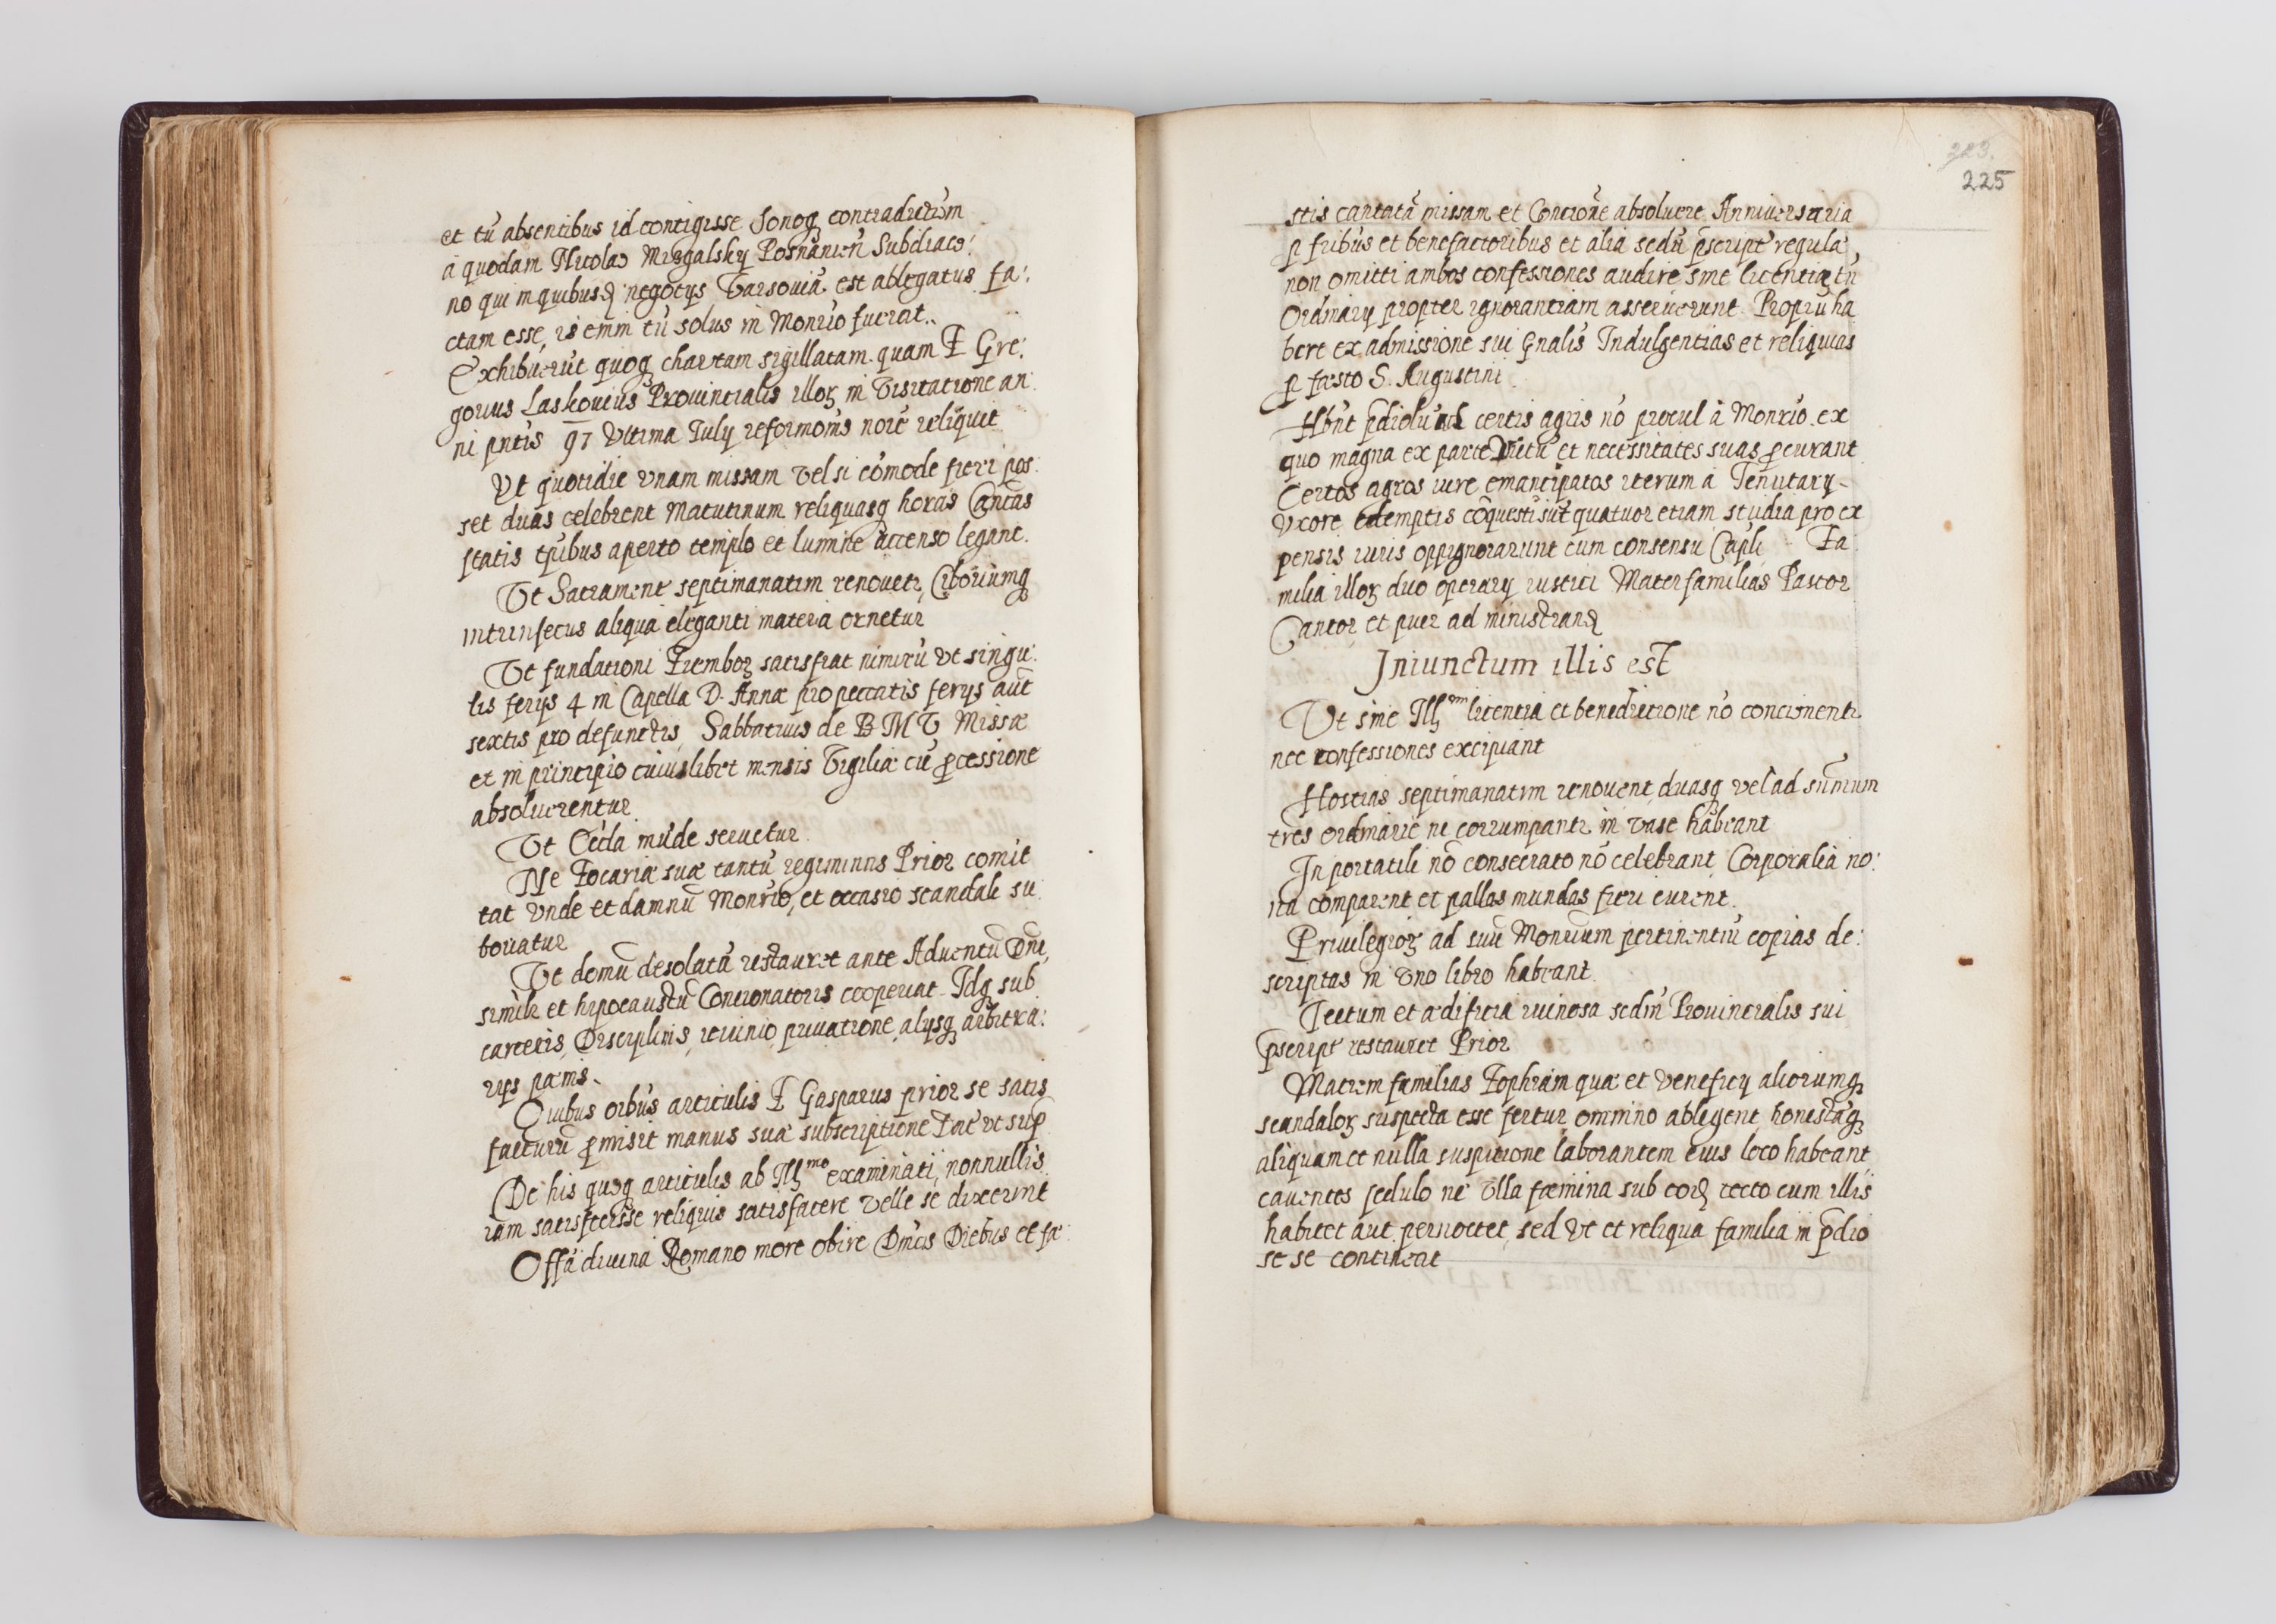 et tũ absentibus id contigisse Sonoq contradictũm
á quodam Nicolao Miegalsky Posnãnieñ Subdiaco:
no qui in quibusd negotÿs Varsouiã est ablegatus fa:
ctam esse, is enim tũ solus in Monrio fuerat.
Exhibuerũt quoq chartam sigillatam quam F Gre:
gorius Laskouius Prouincialis illoꝝ in Visitatione an:
ni pñtis 97 Vltima Iulÿ reformõnis noie reliquit
Vt quotidie vnam missam vel si cõmode fieri pos:
set duas celebrent Matutinum reliquasq horas Cancas
statis tpibus aperto templo et lumine accenso legant.
Vt Sacrament septimanatim renouetr, Ciboriumq
intrinsecus aliqua eleganti materia ornetur
Vt fundationi Fremboꝝ satisfiat nimirũ vt singu:
lis ferÿs 4 in Capella D. Annæ pro peccatis ferÿs aũt
sextis pro defunctis, Sabbatinis de B M V Missæ
et in principio cuiuslibet mensis Vigiliæ cũ ꝓcessione
absoluerentur
Vt Cecla mũde seruetur
Ne Focariæ suæ tantũ regiminis Prior comit
tat vnde et damnũ Monrio, et occasio scandali su
boriatur
Vt domũ desolatã restauret ante Aduentũ Dni,
simile et hipocaustũ Concionatoris cooperiat. Idq sub
carceris, Disciplinis, reiunio, priuatione, alÿsq arbitra:
rÿs pænis.
Quibus oibus articulis F Gasparus prior se satis
facturũ ꝓmisit manus suæ subscriptione Dat vt sup
De his quoq articulis ab Illmo examinati, nonnullis
iam satisfecisse reliquis satisfacere velle se dixerunt
Offa diuina Romano more obire Dnicis Diebus et fe:
223.
225
stis cantatã missam et Concionẽ absoluere Anniuersaria
p fribus et benefactoribus et alia sedũ pscript regulæ
non omitti ambos confessiones audire sine licentia tñ
Ordinarÿ propter ignorantiam asseruerunt. Propriũ ha
bere ex admissione sui Gnalis Indulgentias et reliquias
p fæsto S. Augustini
Hbnt pdiolũ certis agris nõ procul à Monrio ex
quo magna ex parte victũ et necessitates suas pcurant
Certos agros iure emancipatos iterum á Tenutarÿ
Vxore edemptis cõquesti sũt quatuor etiam studia pro ex
pensis iuris oppignorarunt cum consensu Capli Fa:
milia illoꝝ duo operarÿ rustici Materfamilias Pastor
Cantor et puer ad ministrand
Iniunctum illis est
Vt sine Illom licentia et benedictione nõ concionentr
nec confessiones excipiant
Hostias septimanatim renouent, duasq vel ad sum̃um
tres ordinarie ne corrumpantr in vase habeant
In portatili nõ consecrato nõ celebrant, Corporalia no:
ua comparent et pallas mundas fieri curent.
Priuilegioꝝ ad suũ Monrium pertinentiũ copias de:
scriptas in vno libro habeant
Tectum et ædificia ruinosa sedm Prouincialis sui
pscript restauret Prior
Matremfamilias Fophiam quæ et veneficÿ aliorumq
scandaloꝝ suspecta esse fertur omnino ablegent, honestãq
aliquam et nulla suspitione laborantem eius loco habeant
cauentes sedulo ne vlla fæmina sub eod tecto cum illis
habitet aut pernoctet, sed vt et reliqua familia in pdio
se se contineat